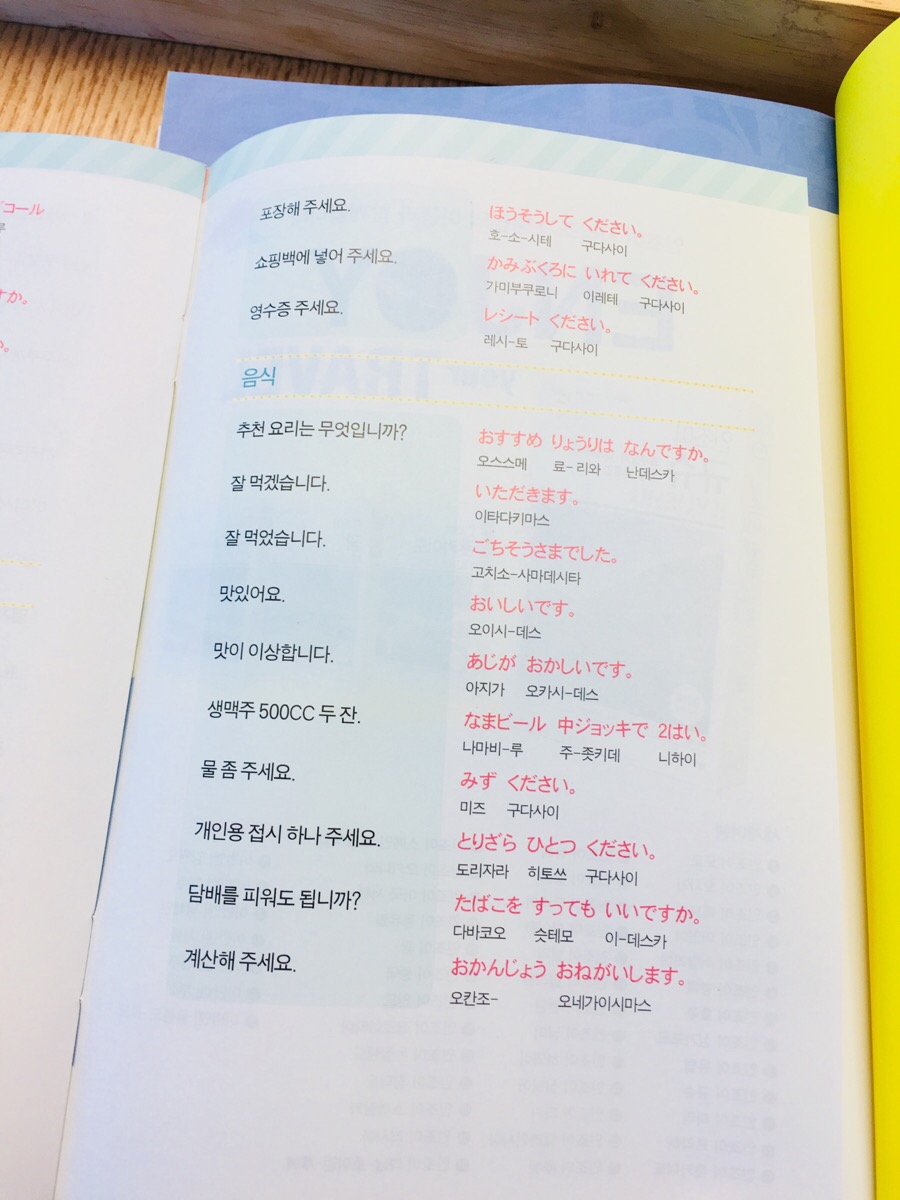 コール
루
すか。
か。
포장해 주세요.
ほうそうして ください。
호-소-시테 구다사이
쇼핑백에 넣어 주세요.
かみぶくろに いれて ください。
가미부쿠로니 이레테 구다사이
영수증 주세요.
レシート ください。
레시-토 구다사이
음식
추천 요리는 무엇입니까?
おすすめ りょうりは なんですか。
오스스메 료-리와 난데스카
잘 먹겠습니다.
いただきます。
이타다키마스
잘 먹었습니다.
ごちそうさまでした。
고치소-사마데시타
맛있어요.
おいしいです。
오이시-데스
맛이 이상합니다.
あじが おかしいです。
아지가 오카시-데스
생맥주 500CC 두 잔.
なまビール 中ジョッキで 2はい。
나마비-루 주-죳키데 니하이
물 좀 주세요.
みず ください。
미즈 구다사이
개인용 접시 하나 주세요.
とりざら ひとつ ください。
도리자라 히토쓰 구다사이
담배를 피워도 됩니까?
たばこを すっても いいですか。
다바코오 슷테모 이-데스카
계산해 주세요.
おかんじょう おねがいします。
오칸조- 오네가이시마스